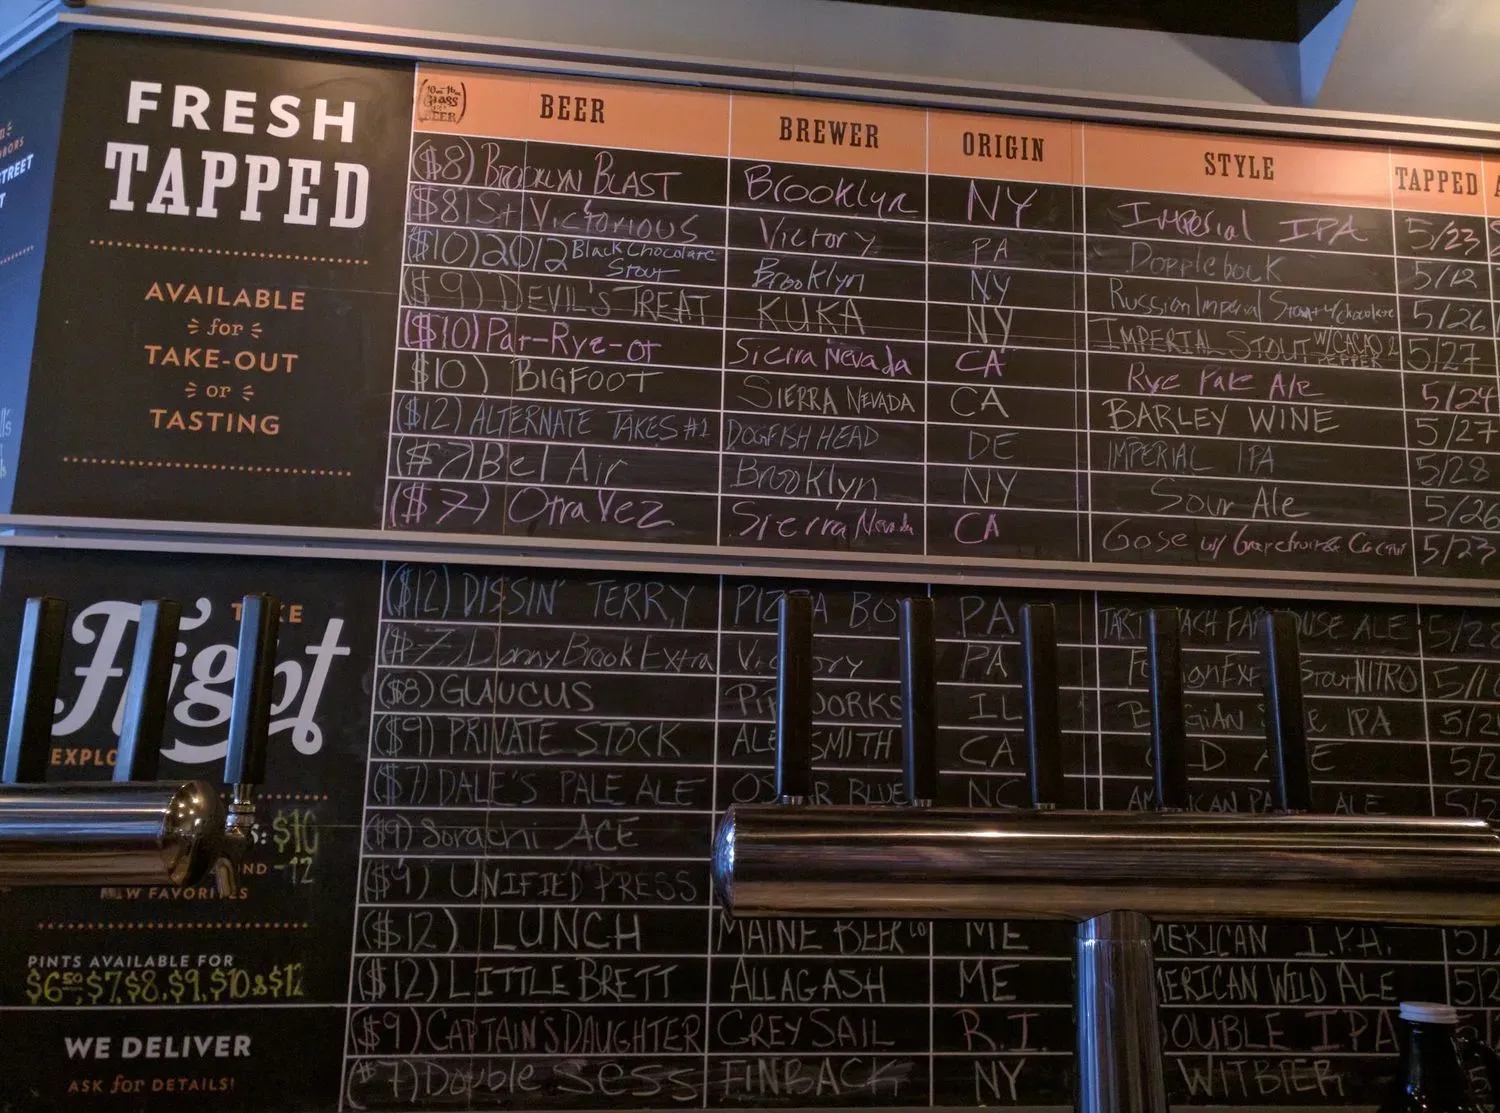 FRESH
TAPPED
AVAILABLE
for
TAKE-OUT
or
TASTING
Glass
BEER
BEER BREWER ORIGIN STYLE TAPPED
($8) BROOKLYN BLAST Brooklyn NY Imperial IPA 5/23
($8) St Victorious Victory PA Dopplebock 5/12
($10) 2012 Black Chocolate Stout Brooklyn NY Russian Imperial Stout w/chocolate 5/26
($9) DEVIL'S TREAT KUKA NY IMPERIAL STOUT W/CACAO & PEPPER 5/27
($10) Pair-Rye-ot Sierra Nevada CA Rye Pale Ale 5/24
($10) BIGFOOT SIERRA NEVADA CA BARLEY WINE 5/27
($12) ALTERNATE TAKES #1 DOGFISH HEAD DE IMPERIAL IPA 5/28
($7) Bel Air Brooklyn NY Sour Ale 5/26
($7) Otra Vez Sierra Nevada CA Gose w/ Grapefruit & Cacti 5/23
($12) DISSIN' TERRY PIZZA BO PA TART ACH FAR OUSE ALE 5/28
($7) Donny Brook Extra Vi ory PA ignEx Stout NITRO 5/1
($8) GLAUCUS PIP WORKS IL B GIAN E IPA 5/2
($9) PRIVATE STOCK ALE SMITH CA D A E 5/2
($7) DALE'S PALE ALE OS AR BLUE NC AM ICAN PA ALE 5/2
($9) Sorachi ACE
($9) UNIFIED PRESS
($12) LUNCH MAINE BEER CO ME MERICAN I.P.A. 5/
($12) LITTLE BRETT ALLAGASH ME MERICAN WILD ALE 5/2
($9) CAPTAIN'S DAUGHTER GREY SAIL R.I. OUBLE IPA
($7) Double SESS FINBACK NY WITBIER
TAKE
Flight
EXPLO
: $10
ND -12
NEW FAVORITES
PINTS AVAILABLE FOR
$6.50, $7, $8, $9, $10 & $12
WE DELIVER
ASK for DETAILS!
STREET